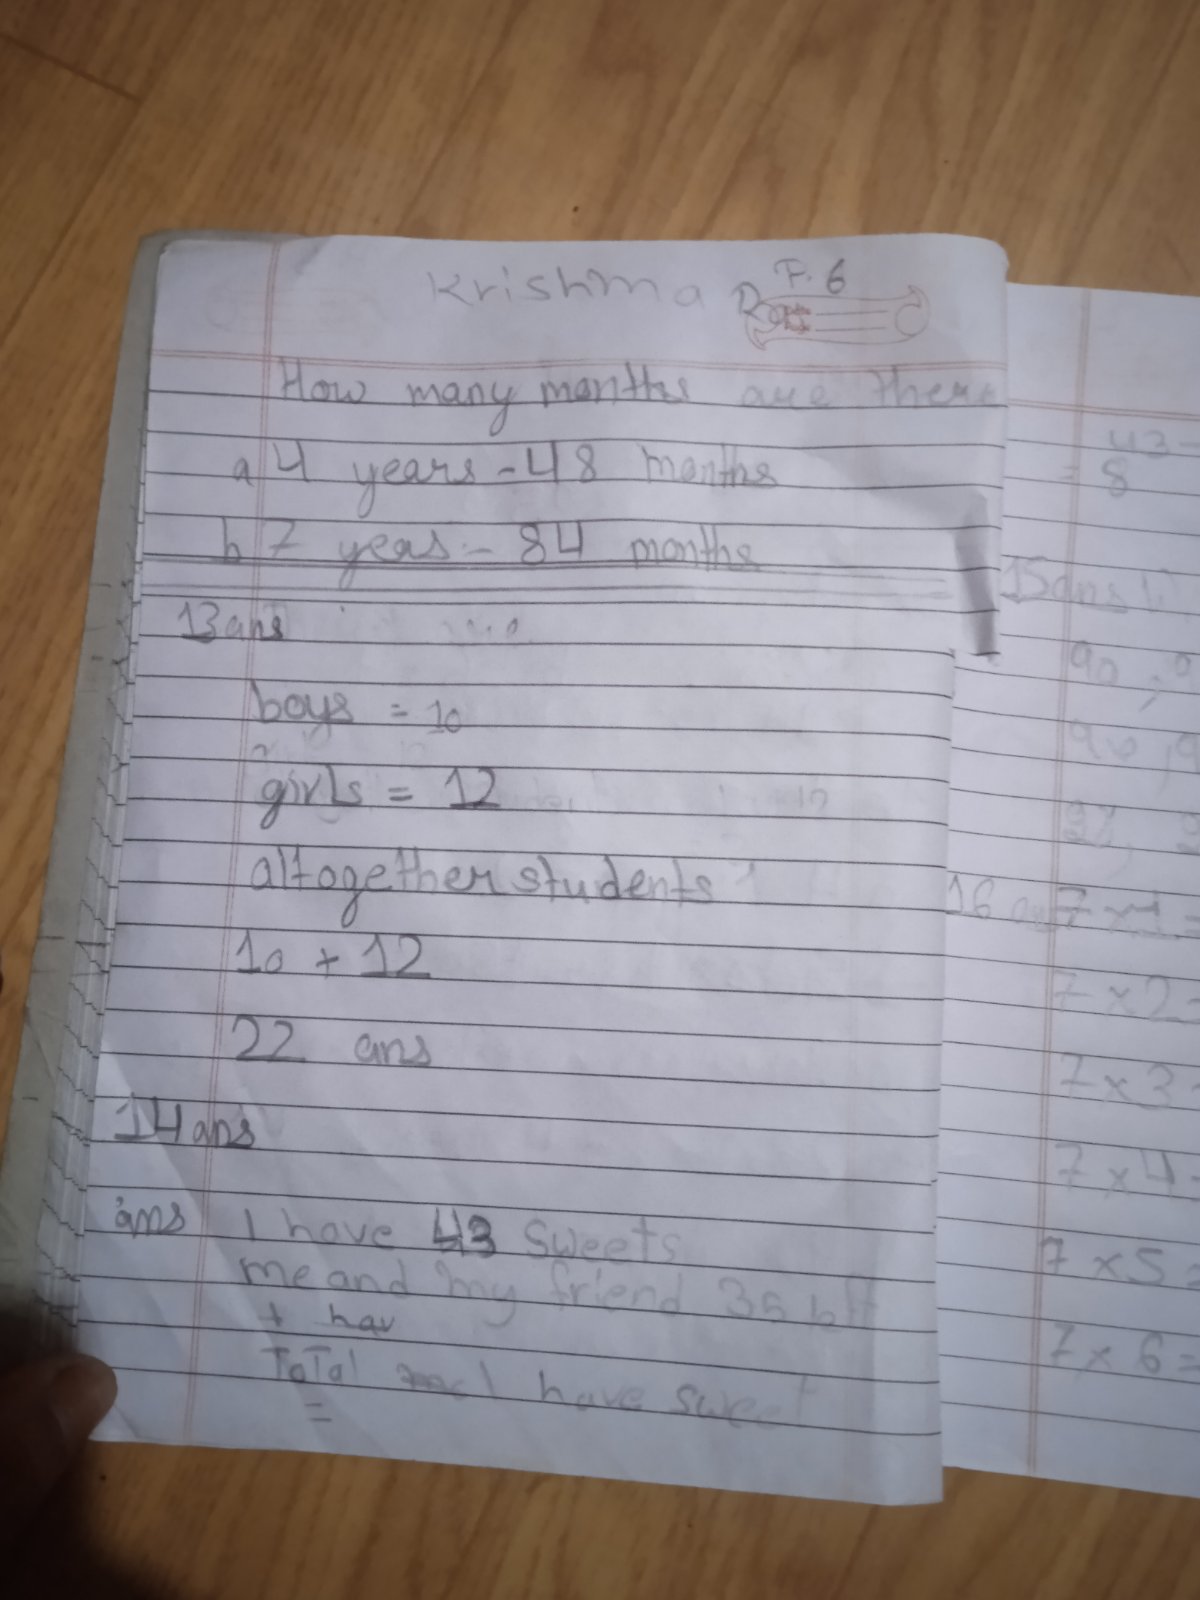 Krishma P. 6
How many months are there
a 4 years - 48 months
b 7 yeas - 84 months
13 ans
boys = 10
girls = 12
altogether students
10 + 12
22 ans
14 ans
ans I have 43 sweets
me and my friend 35
+ hav
ToTal I have sweet
=
43 -
= 8
15 ans
90 ,
90 ,
16 7 x 1 =
7 x 2 =
7 x 3 =
7 x 4 =
7 x 5 =
7 x 6 =